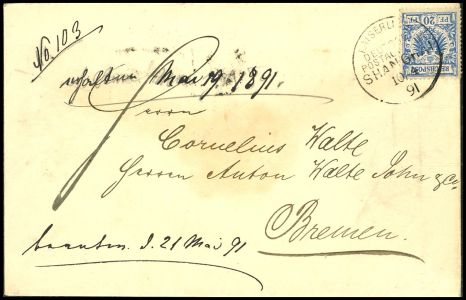 No. 103
KAISERLICH
DEUTSCHE
POSTAG
SHANGHAI
10
91
20 PF. 20 PF.
REICHSPOST
erhalten Mai 19. 1891.
Herrn
Cornelius Walte
Herren Anton Walte Sohn & Co,
Bremen.
beantw. d. 21 Mai 91